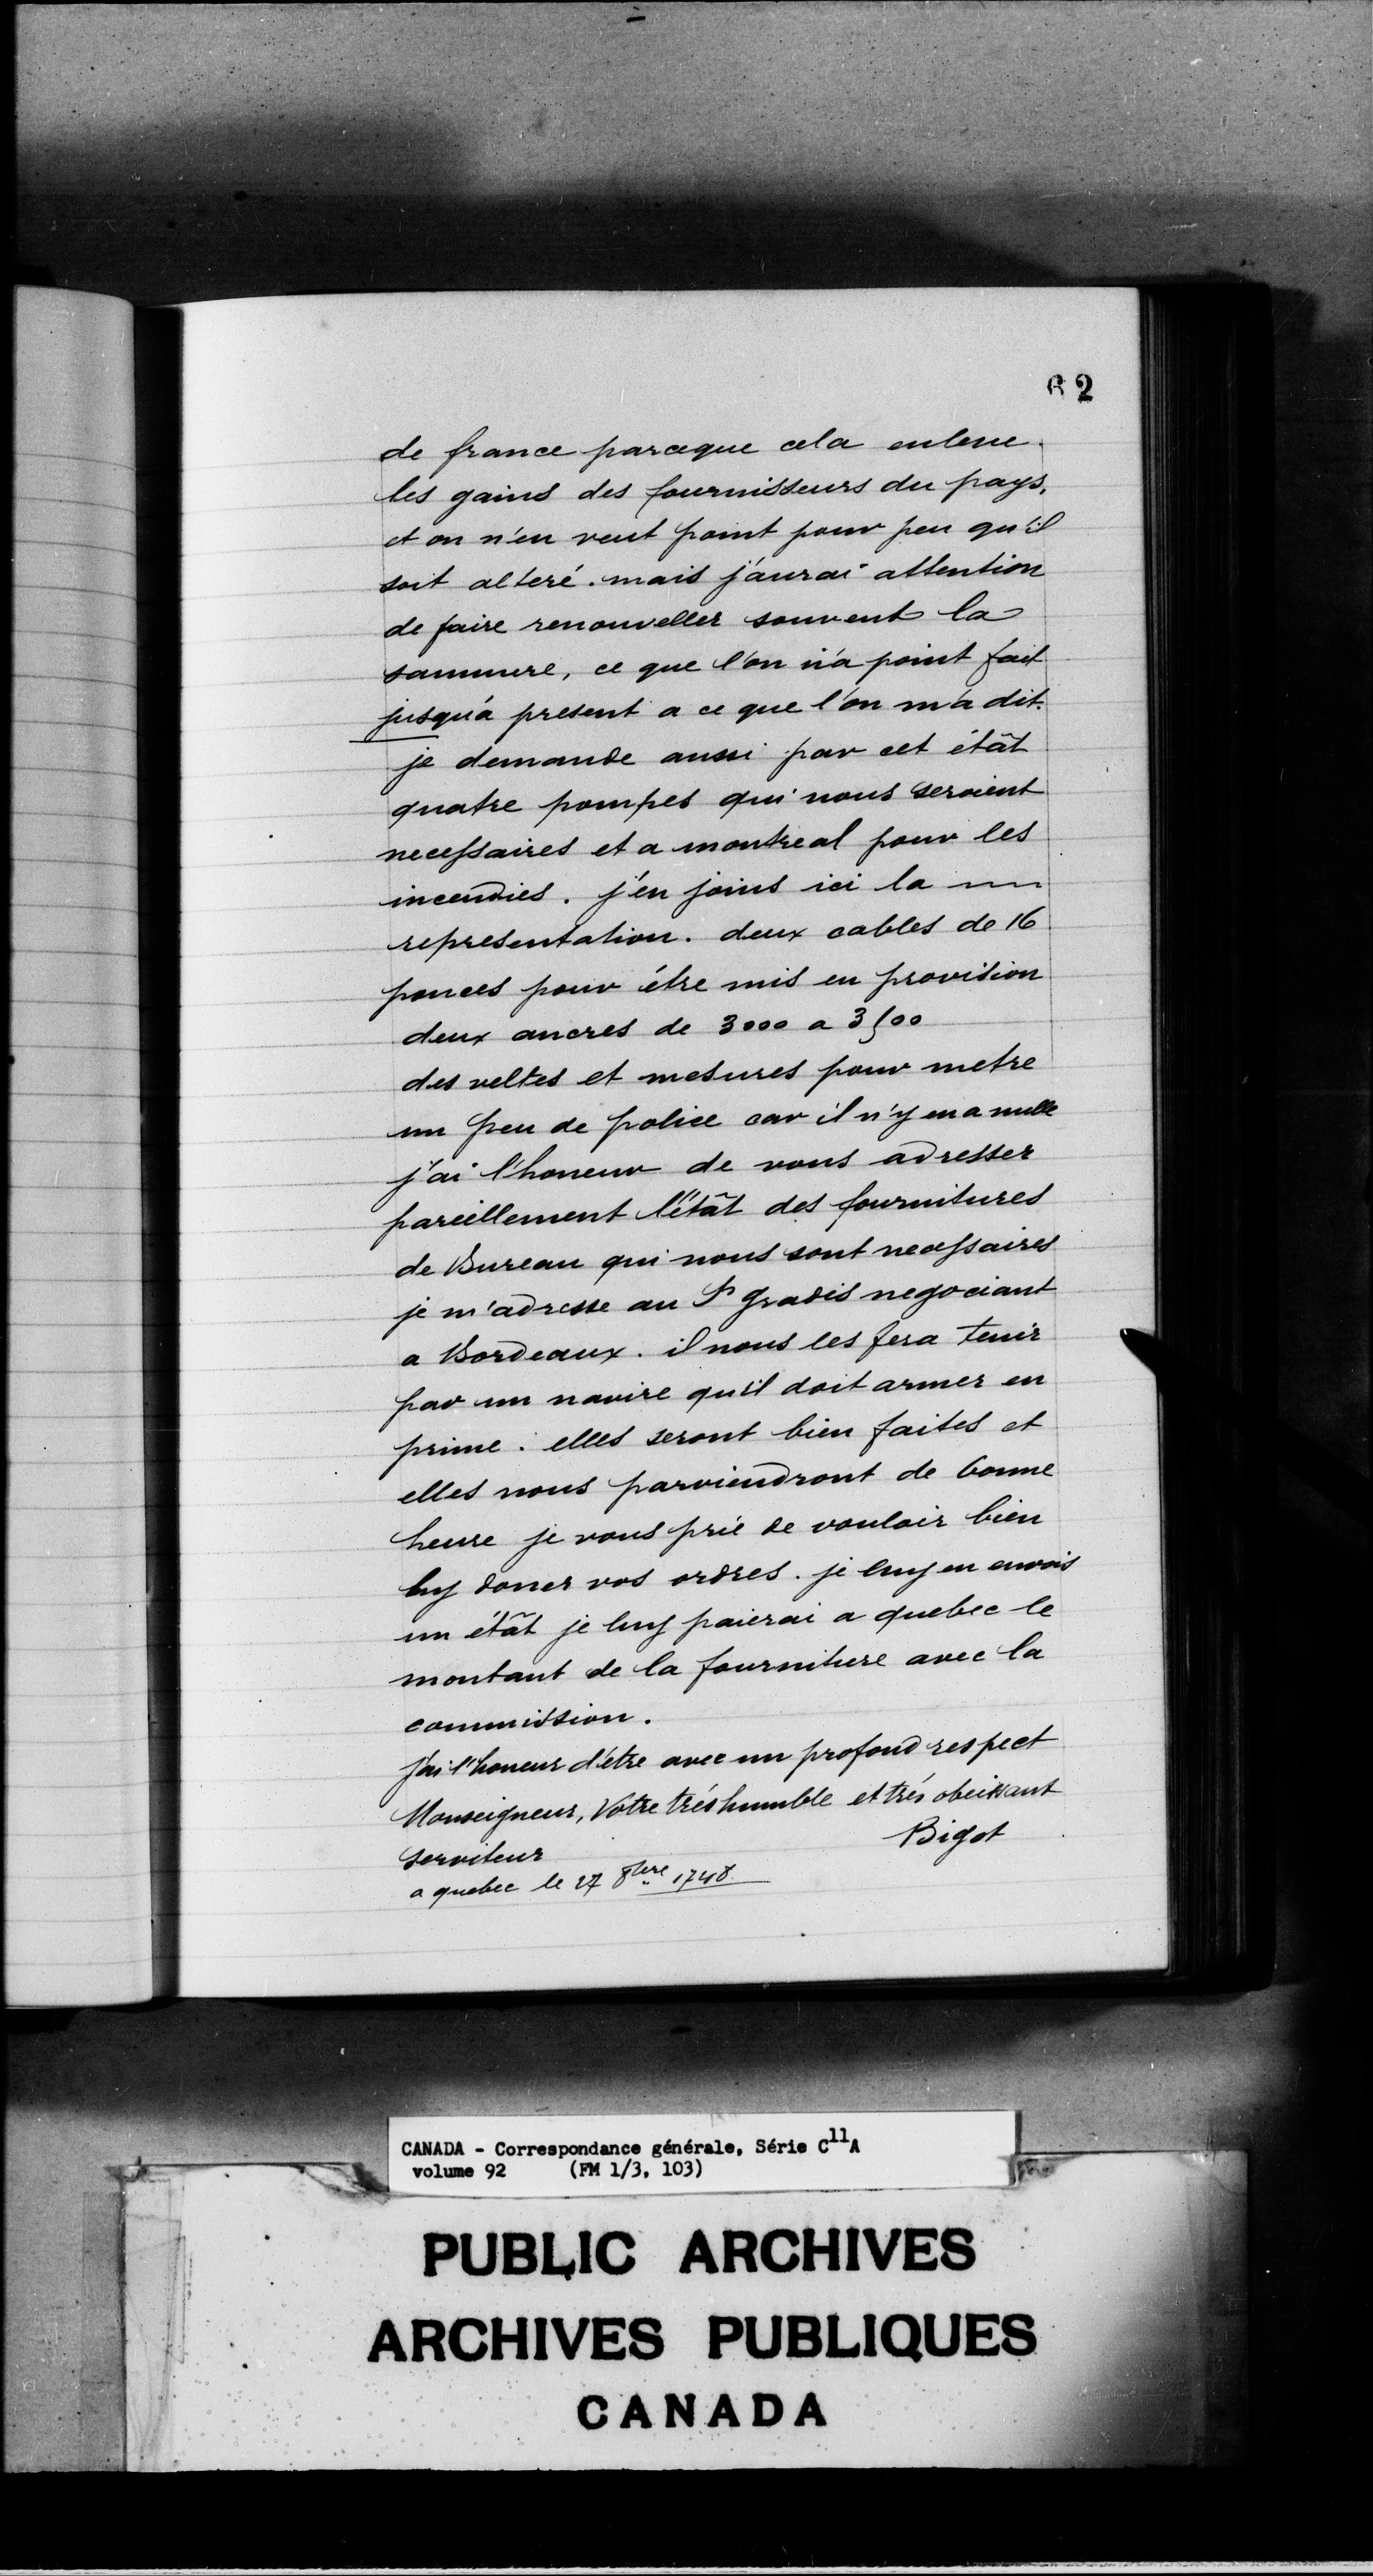 62
de france parceque cela enleve
les gains des fournisseurs du pays,
et on n'en veut point pour peu qu'il
soit alteré. mais j'aurai attention
de faire renouveller souvent la
saumure, ce que l'on n'a point fait
jusqu'a present a ce que l'on m'a dit.
je demande aussi par cet étât
quatre pompes qui nous seroient
necessaires et a montreal pour les
incendies. j'en joins ici la
representation. deux cables de 16
pouces pour étre mis en provision
deux ancres de 3000 a 3500
des veltes et mesures pour metre
un peu de police car il n'y en a nulle
j'ai l'honeur de vous adresser
pareillement l'étât des fournitures
de Bureau qui nous sont necessaires
je m'adresse au Sr gradis negociant
a Bordeaux. il nous les fera tenir
par un navire qu'il doit armer en
prime: elles seront bien faites et
elles nous parviendront de bonne
heure je vous prie de vouloir bien
luy doner vos ordres. je luy en envois
un étât je luy paierai a quebec le
montant de la fourniture avec la
commission.
j'ai l'honeur d'étre avec un profond respect
Monseigneur, Votre trés humble et trés obeissant
serviteur
Bigot
a quebec le 27 8bre 1748
CANADA - Correspondance générale, Série C11A
volume 92 (FM 1/3, 103)
PUBLIC ARCHIVES
ARCHIVES PUBLIQUES
CANADA